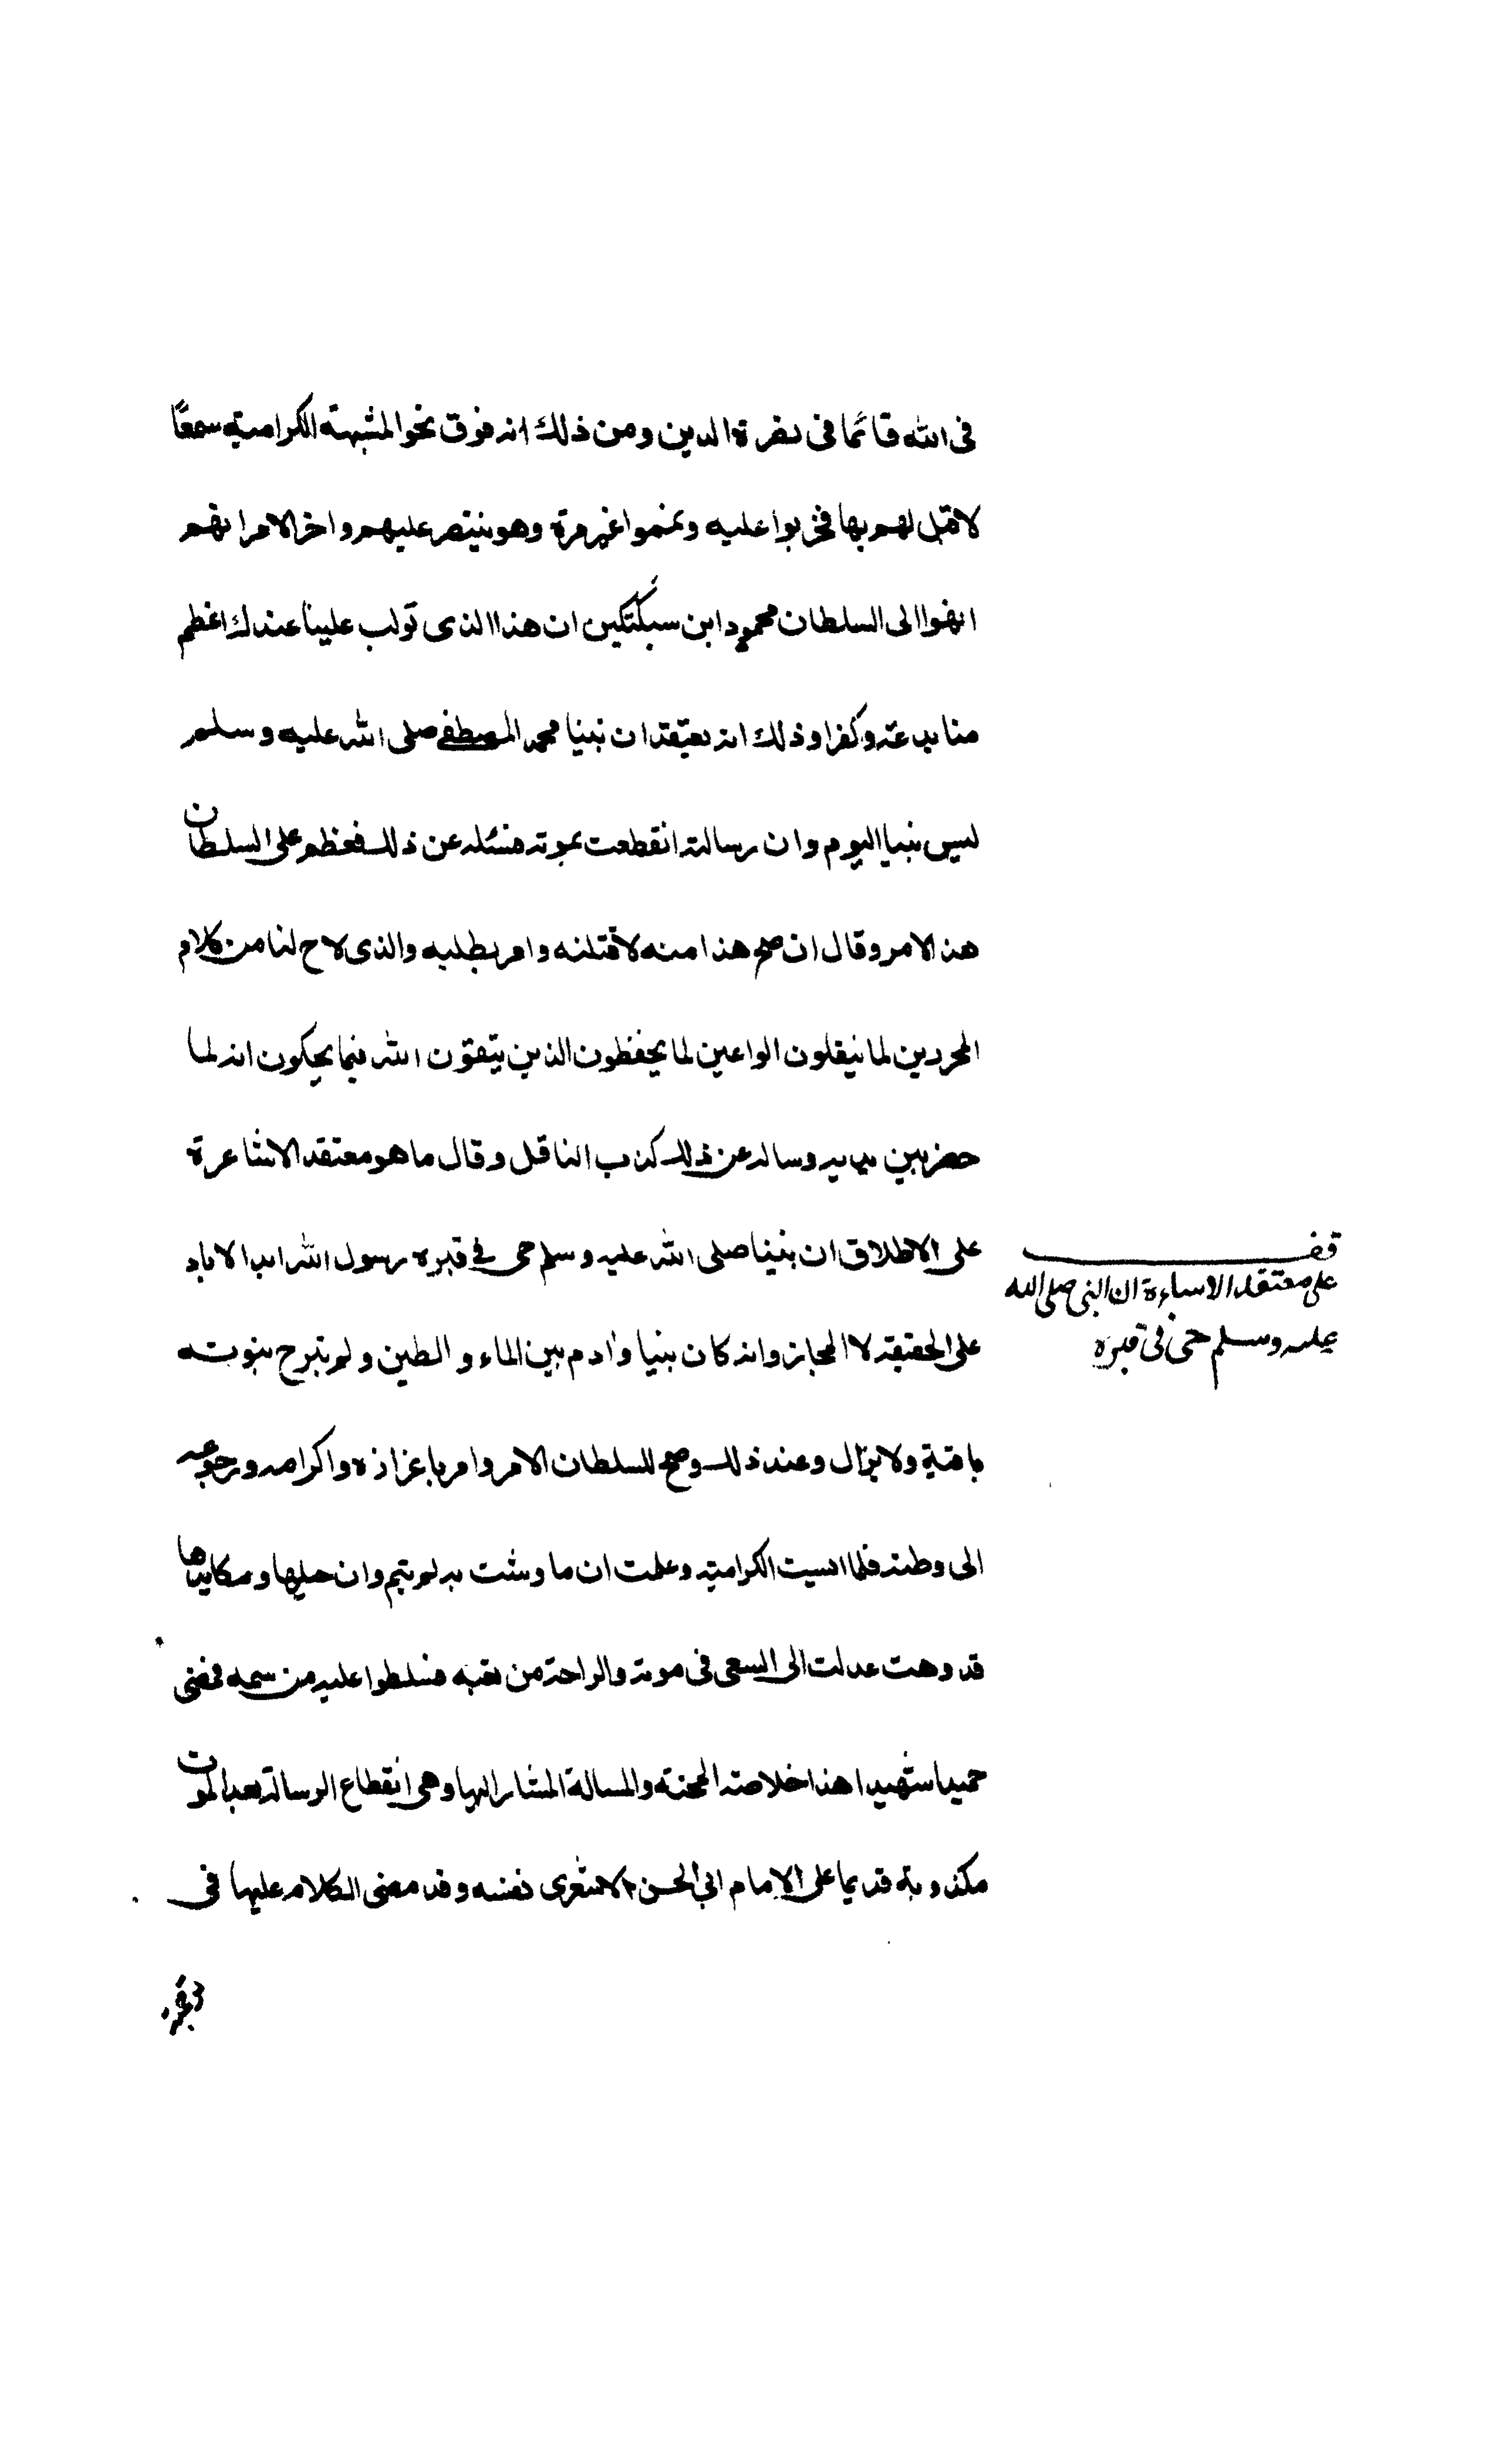 فى الله قائما فى نصرة الدين ومن ذلك انه فوق نحو المشبهة الكرامية سمعًا
لا قبل لهم بها فخربوا عليه ونمموا غير مرة وهو ينتصر عليهم واخر الامر انهم
انهوا الى السلطان محمود ابن سبكتكين ان هذا الذى تولب علينا عندك اعظم
منا بدعة وكفرا وذلك انه يعتقد ان نبينا محمد المصطفى صلى الله عليه وسلم
ليس نبيا اليوم وان رسالته انقطعت بموته فسئله عن ذلك فعظم على السلطان
هذا الامر وقال ان صح هذا منه لاقتلنه وامر بطلبه والذى لاح لنا من كلام
المحررين لما ينقلون الواعين لما يحفظون الذين يتقون الله فيما يحكون انه لما
حضر بين يديه وساله عن ذلك كذب الناقل وقال ما هو معتقد الاشاعرة
على الاطلاق ان نبينا صلى الله عليه وسلم حى فى قبره رسول الله ابد الاباد
على الحقيقة لا المجاز وانه كان نبيا وادم بين الماء والطين ولم تبرح نبوته
باقية ولا يزال وعند ذلك وضح للسلطان الامر وامر باعزازه واكرامه ورجوعه
الى وطنه فلما ايست الكرامية وعلمت ان ما وشت به لم يتم وان حيلها ومكايدها
قد وهت عدلت الى السعى فى موته والراحة من تعبه فسلطوا عليه من سمه فمضى
حميدا شهيدا هذا خلاصة المحنة والمسالة المشار اليها وهى انقطاع الرسالة بعد الموت
مكذوبة قديما على الامام ابى الحسن الاشعرى نفسه وقد مضى الكلام عليها فى
قف
على معتقد الاساعرة ان النبى صلى الله
عليه وسلم حى فى قبره